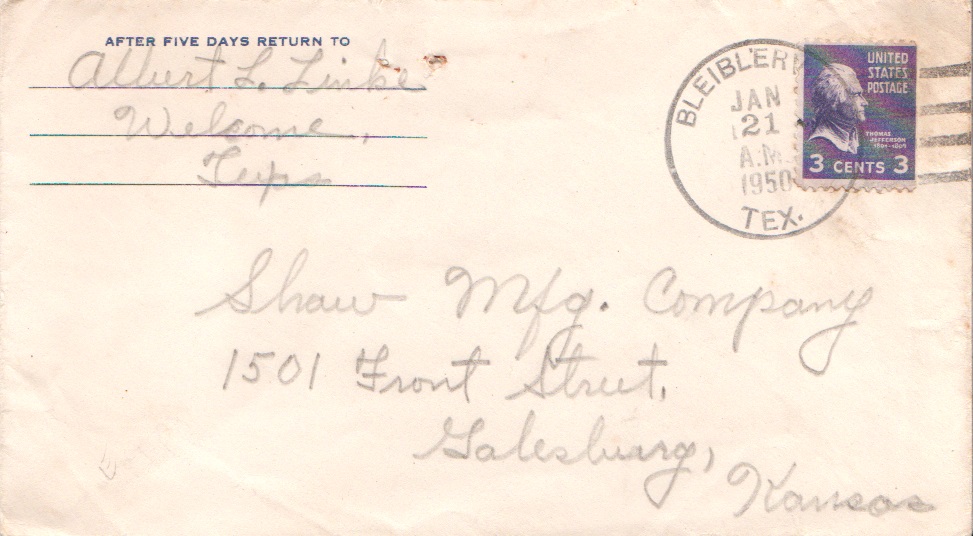 AFTER FIVE DAYS RETURN TO
Albert L. Linke
Welcome,
Texas
BLEIBLER
JAN
21
A.M.
1950
TEX.
UNITED
STATES
POSTAGE
THOMAS
JEFFERSON
1801-1809
3 CENTS 3
Shaw Mfg. Company
1501 Front Street,
Galesburg,
Kansas